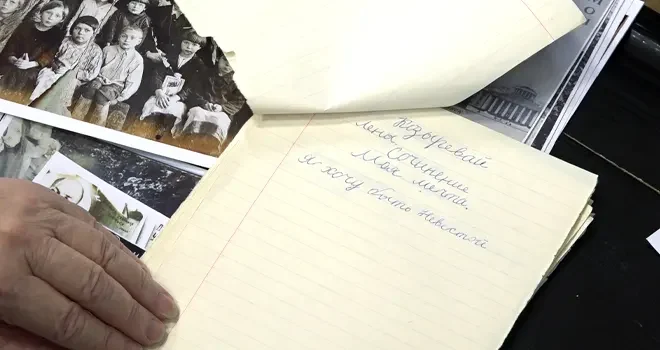 Козыревай
Лены
Сочинение
Моя мечта.
Я хочу быть невестой